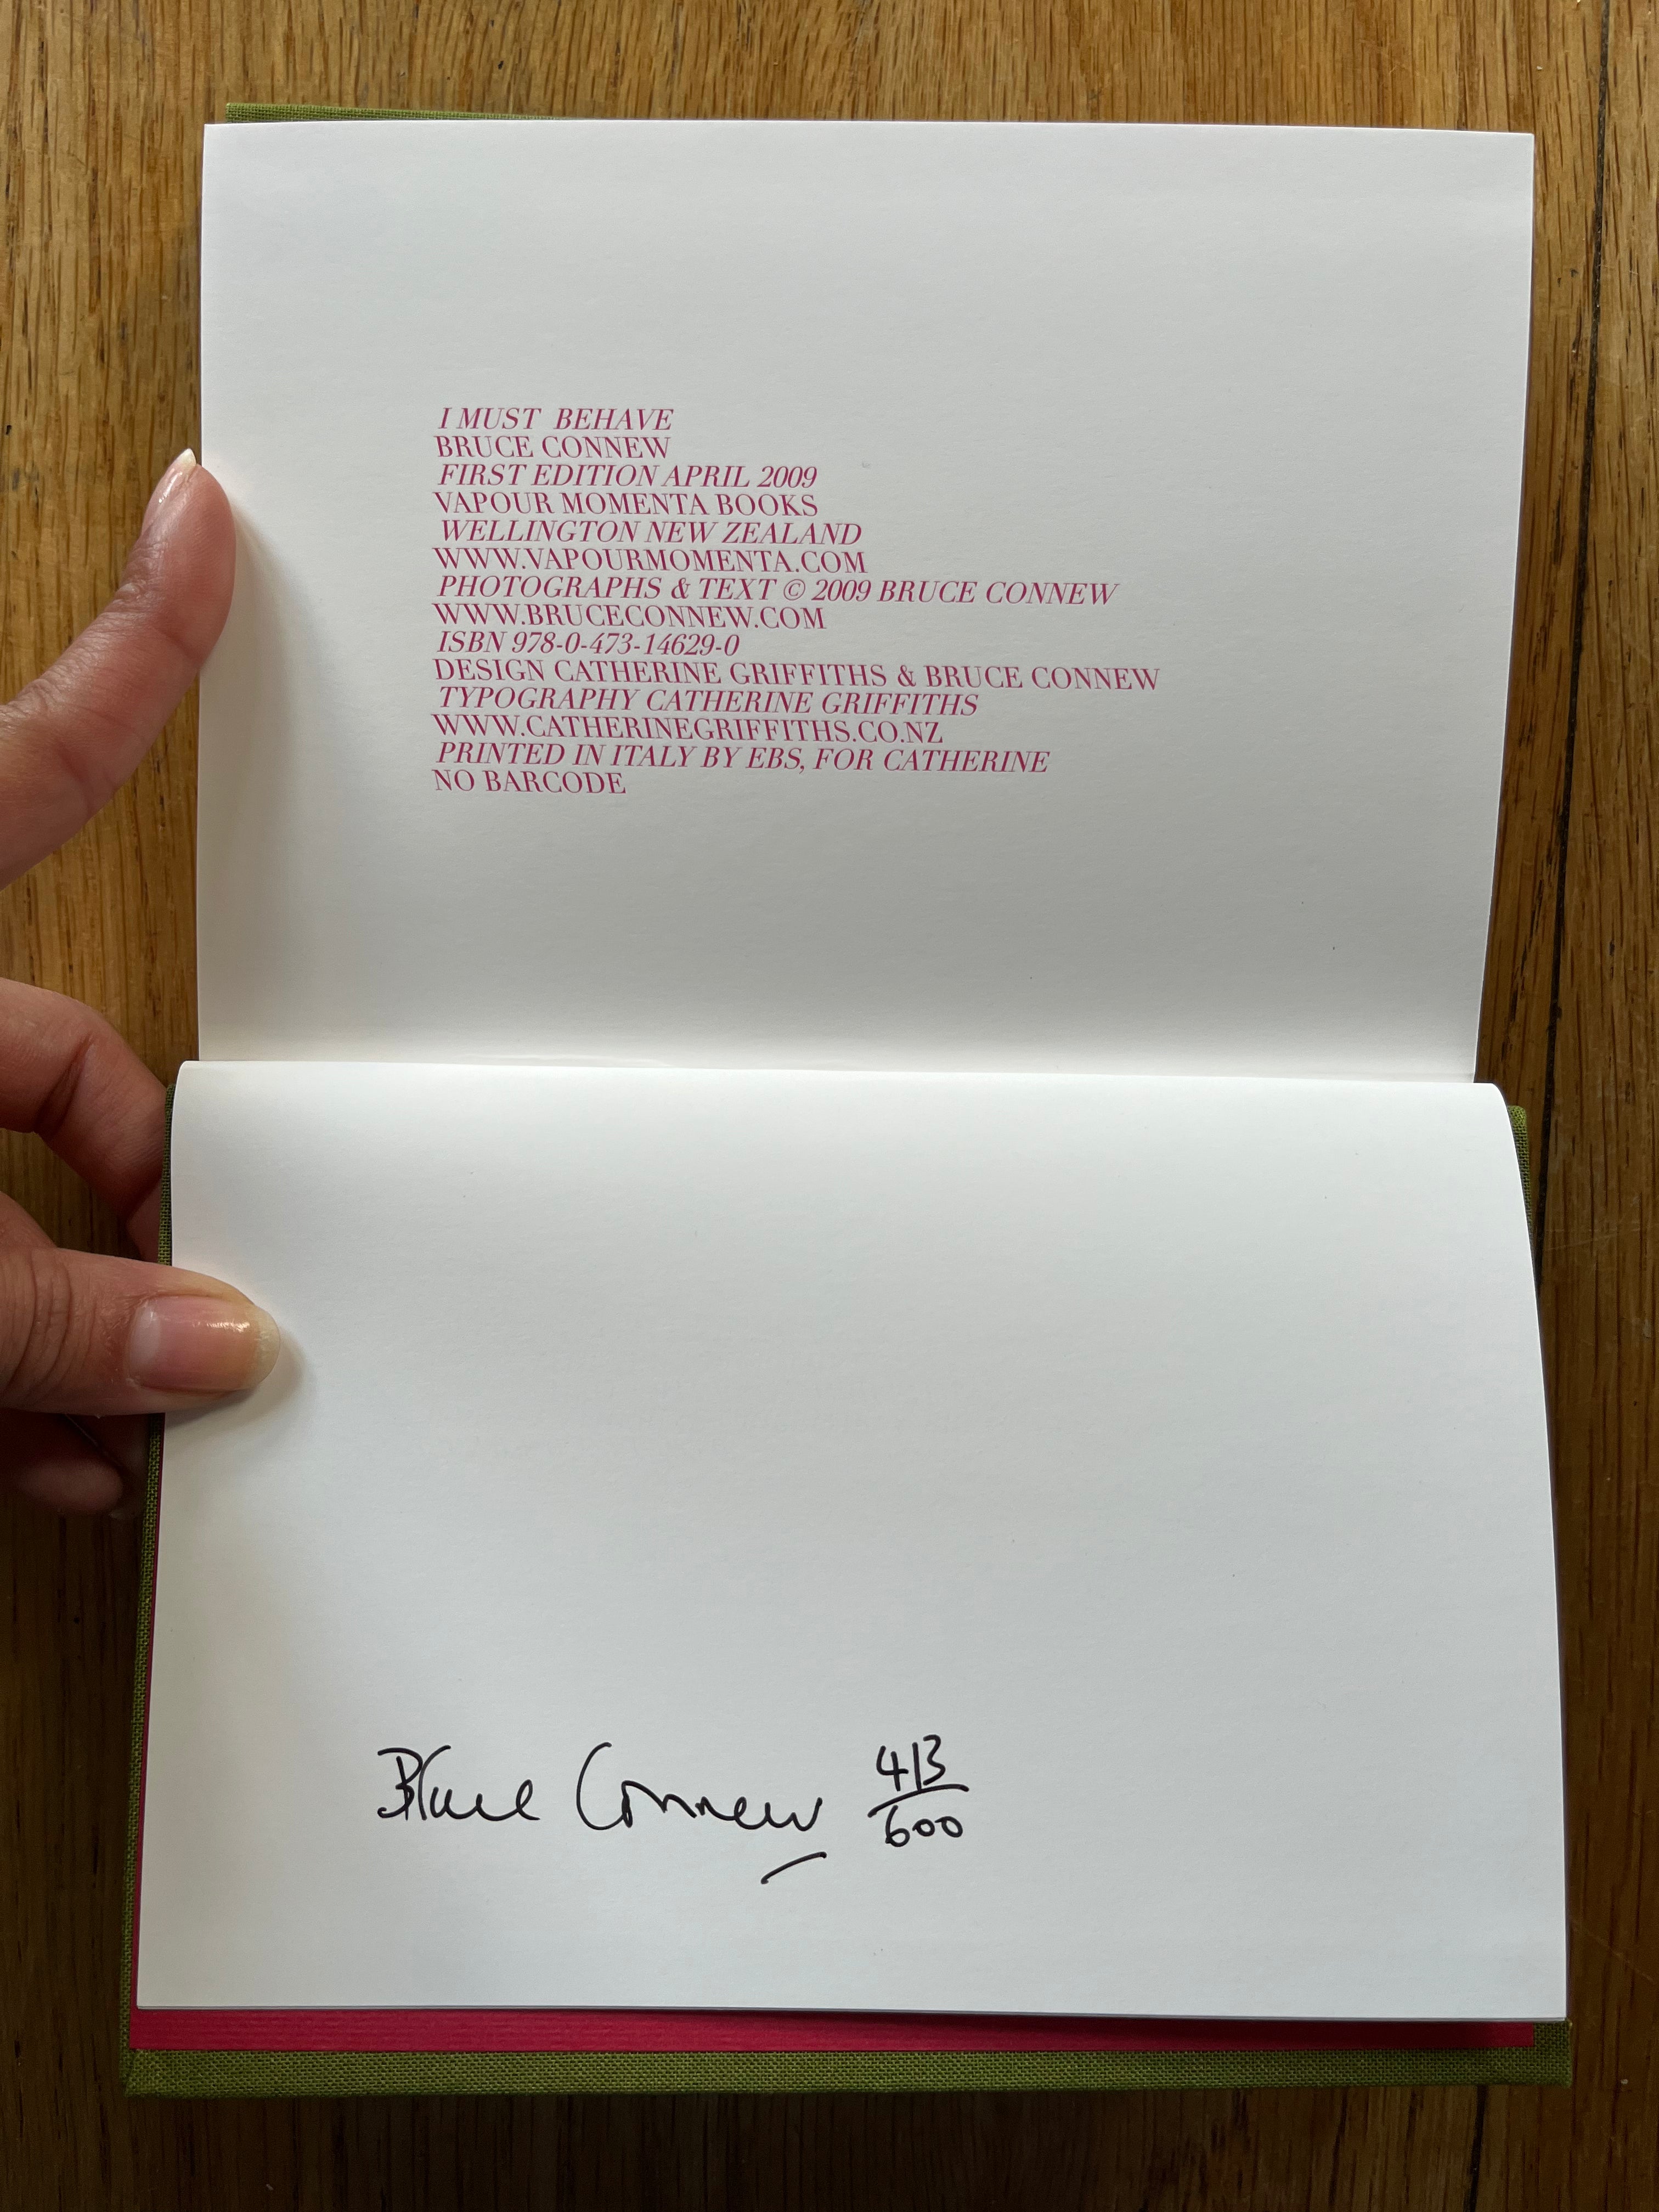 I MUST BEHAVE
BRUCE CONNEW
FIRST EDITION APRIL 2009
VAPOUR MOMENTA BOOKS
WELLINGTON NEW ZEALAND
WWW.VAPOURMOMENTA.COM
PHOTOGRAPHS & TEXT © 2009 BRUCE CONNEW
WWW.BRUCECONNEW.COM
ISBN 978-0-473-14629-0
DESIGN CATHERINE GRIFFITHS & BRUCE CONNEW
TYPOGRAPHY CATHERINE GRIFFITHS
WWW.CATHERINEGRIFFITHS.CO.NZ
PRINTED IN ITALY BY EBS, FOR CATHERINE
NO BARCODE
Bruce Connew 413/600